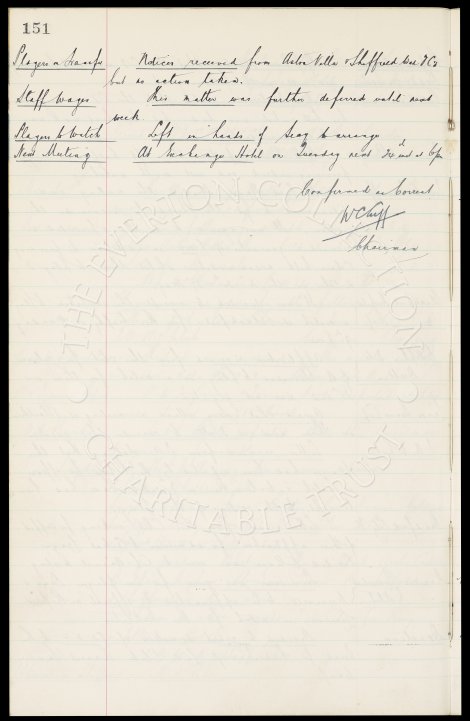 151
Players on Transfer Notices received from Aston Villa & Sheffield Wed F.C's
but no action taken.
Staff Wages This matter was further deferred until next
week.
Players to Watch Left in hands of Secy to arrange
Next Meeting At Exchange Hotel on Tuesday next inst at 6pm
Confirmed as Correct
W C Cuff
Chairman
THE EVERTON COLLECTION
CHARITABLE TRUST